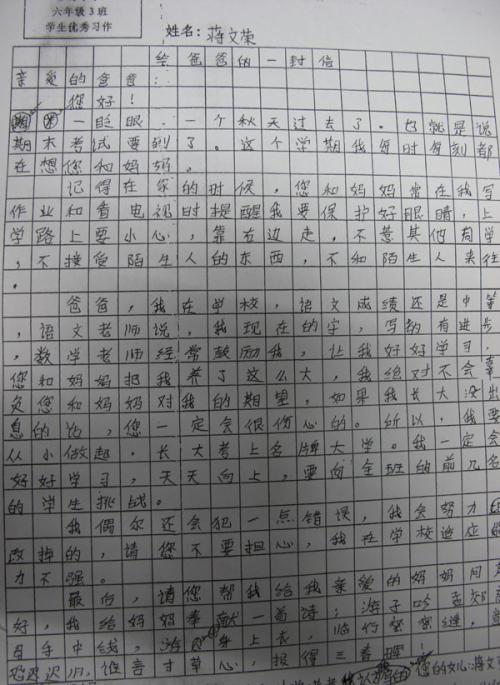 六年级3班
学生优秀习作
姓名：蒋文荣
给爸爸的一封信
亲爱的爸爸：
您好！
一眨眼，一个秋天过去了。也就是说
期末考试要到了。这个学期我每时每刻都
在想您和妈妈。
记得在家的时候，您和妈妈常在我写
作业和看电视时提醒我要保护好眼睛，上
学路上要小心，靠右边走。不惹其他同学
，不接受陌生人的东西，不和陌生人来往
。
爸爸，我在学校，语文成绩还是中等
，语文老师说，我现在的字，写的有进步
，数学老师经常鼓励我，让我好好学习，
您和妈妈把我养了这么大，我绝对不会辜
负您和妈妈对我的期望，如果我长大没出
息的话，您一定会很伤心的。所以，我要
从小做起，长大考上名牌大学。我一定会
好好学习，天天向上，要向全班的前几名
的学生挑战。
我偶尔还会犯一点错误，我会努力
改掉的，请您不要担心，我在学校适应能
力不强。
最后，请您帮我给我亲爱的妈妈问
好，我给妈妈奉献一首诗：游子吟 孟郊
手中线，游 身上衣，临行密密缝，
恐迟迟归，谁言寸草心，报得三春晖 您的女儿：蒋文